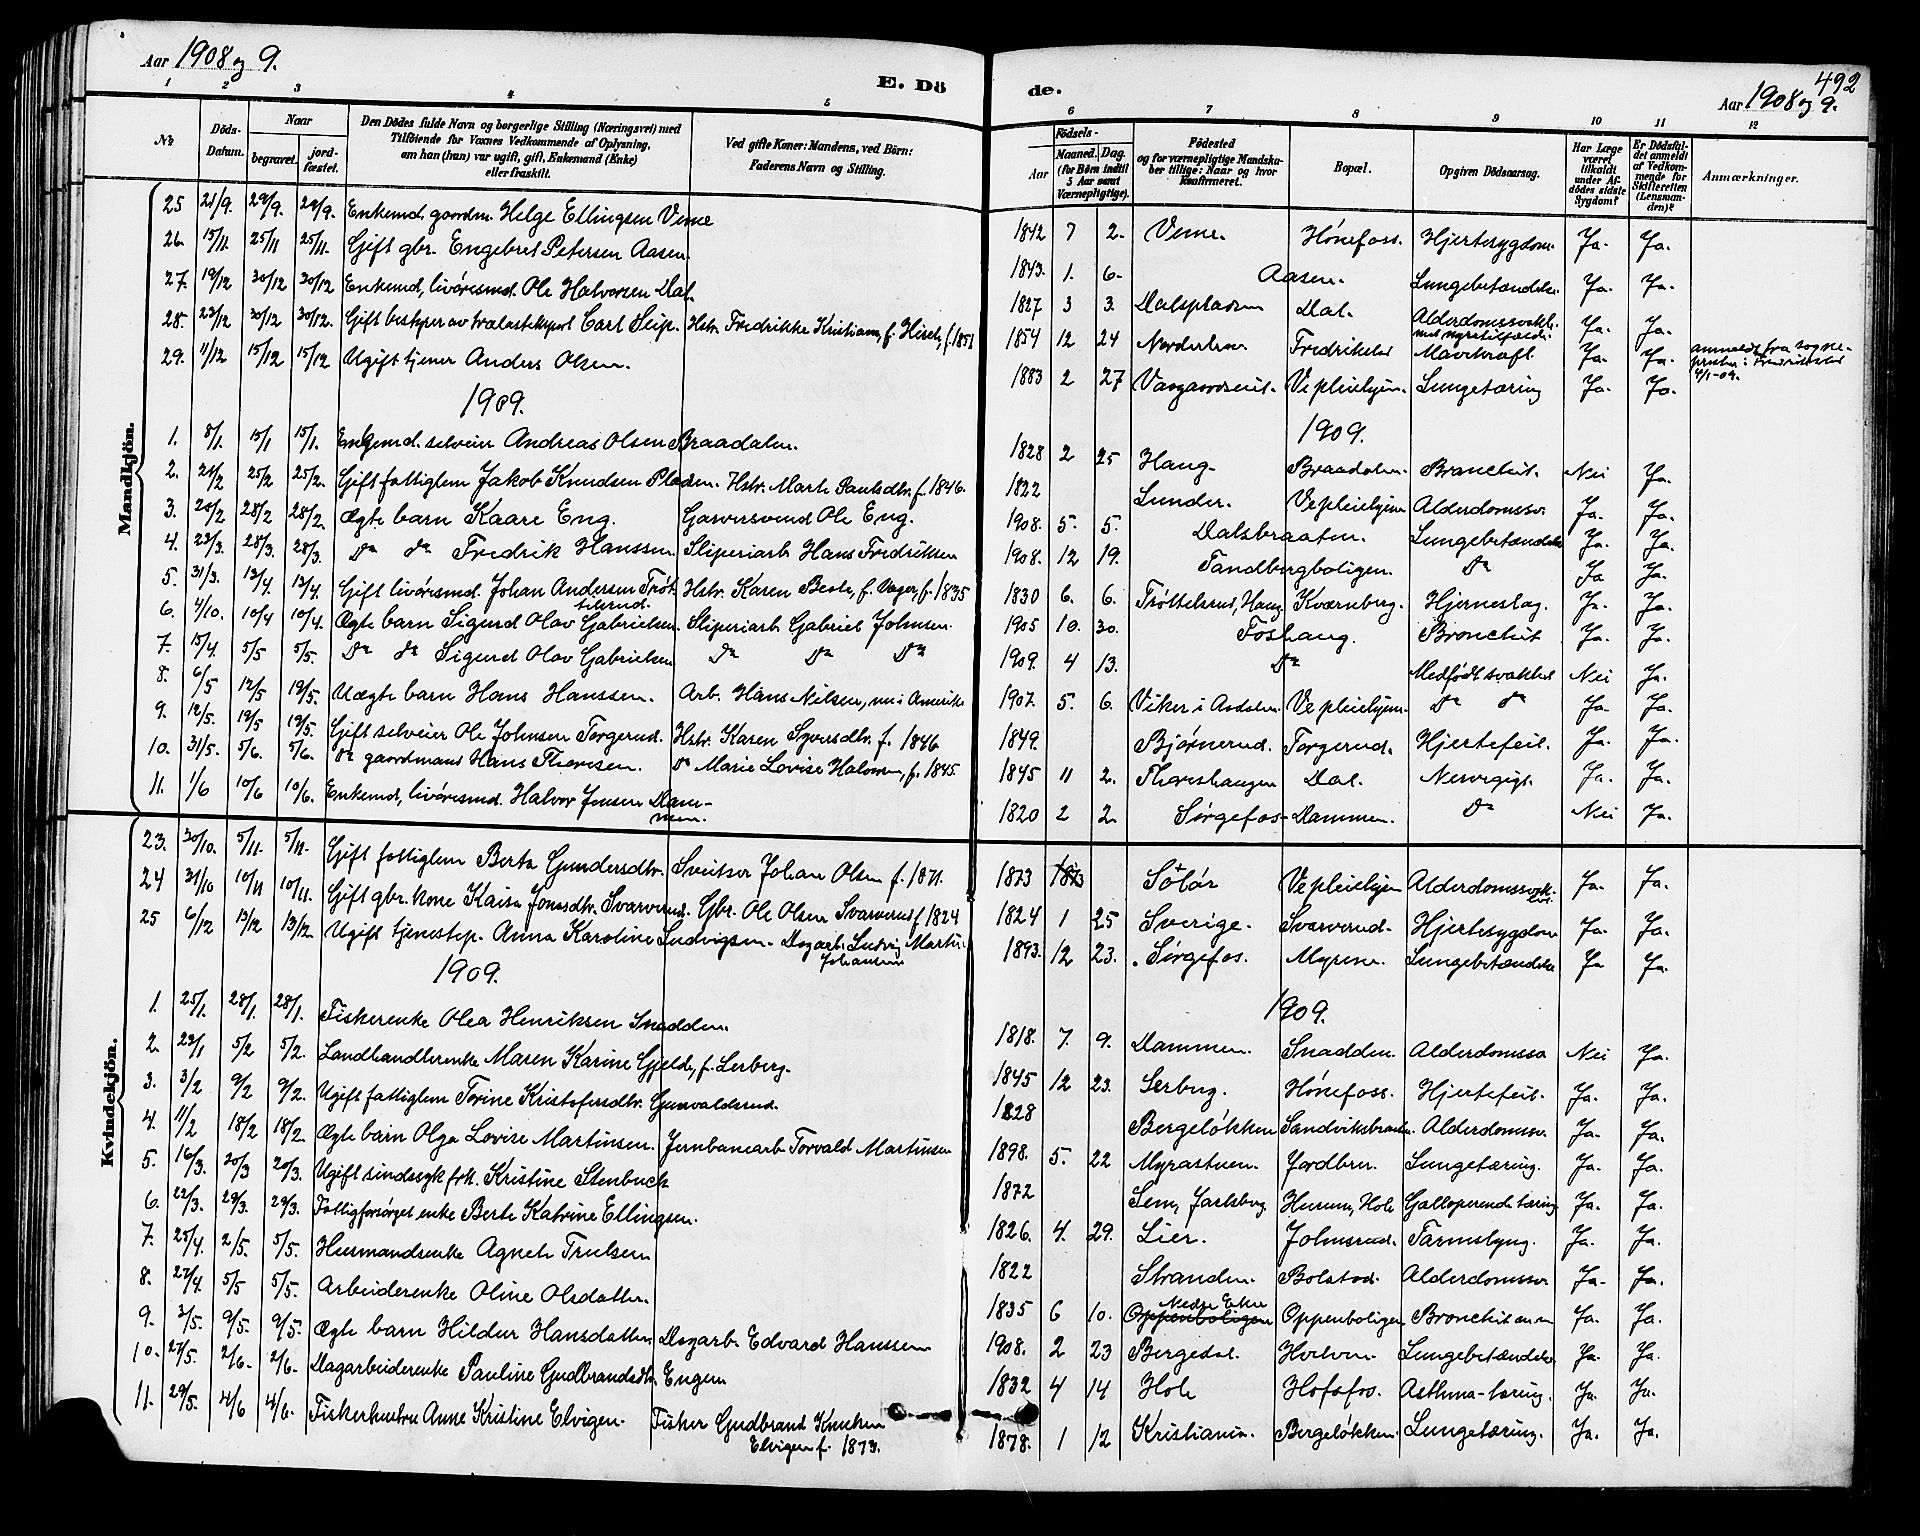 Aar 1908 og 9.
E. Dö
de.
492
Aar 1908 og 9.
1 2 3 4 5 6 7 8 9 10 11 12
No
Döds-Datum.
Naar
begravet.
jordfæstet.
Den Dödes fulde Navn og borgerlige Stilling (Næringsvei) med
Tilföiende for Voxnes Vedkommende af Oplysning,
om han (hun) var ugift, gift, Enkemand (Enke)
eller fraskilt.
Ved gifte Koner: Mandens, ved Börn:
Faderens Navn og Stilling.
Födsels-
Aar
Maaned. Dag.
(for Börn indtil
5 Aar samt
Værnepligtige).
Födested
og for værnepligtige Mandska-
ber tillige: Naar og hvor
konfirmeret.
Bopæl.
Opgiven Dödsaarsag.
Har Læge
været
tilkaldt
under Af-
dödes sidste
Sygdom?
Er Dödsfal-
det anmeldt
af Vedkom-
mende for
Skifteretten
(Lensman-
den)?
Anmærkninger.
Mandkjön.
25 21/9. 29/9. 29/9. Enkemd. gaardm. Helge Ellingsen Veme 1842 7 2. Veme. Hönefoss. Hjertesygdom Ja. Ja.
26. 15/11. 25/11 25/11. Gift gbr. Engebret Petersen Aasen. 1843. 1. 6. Aasen. Lungebetændelse Ja. Ja.
27. 19/12 30/12 30/12 Enkemd, livöresmd. Ole Halvorsen Dal. 1827 3 3. Dalspladsen Dal. Alderdomssvakh. Ja. Ja.
28. 23/12 30/12 30/12. Gift bestyrer av trælasteksport Carl Seip. Hstr. Fredrikke Kristiane, f. Hisch, f. 1851 1854 12 24 Norderhov Fredrikstad Ja. Ja. anmeldt fra sogne-
presten i Fredrikstad
4/1-09.
29. 11/12 15/12 15/12 Ugift tjener Anders Olsen. 1883 2 27 Vepleiehjem. Lungetæring Ja. Ja.
1909. 1909.
1. 8/1. 15/1 15/1. Enkemd. selveier Andreas Olsen Braadalen. 1828 2 25 Haug. Braadalen. Bronchit. Nei Ja.
2. 21/2 25/2 25/2. Gift fattiglem Jakob Knudsen Pladsen. Hstr. Marte Paulsdtr. f. 1846. 1822 Lunder. Vepleiehjem Alderdomssv. Ja. Ja.
3. 20/2 28/2 28/2. Ægte barn Kaare Eng. Garversvend Ole Eng. 1908. 5. 5. Dalsbraaten. Lungebetændelse Ja. Ja.
4. 23/3. 28/3. 28/3. Do do Fredrik Hanssen Sliperiarb. Hans Fredriksen 1908. 12 19. Tandbergboligen. Do Ja Ja.
5. 31/3. 13/4. 13/4. Gift livöresmd. Johan Andersen Tröt-
telsrud. Hstr. Karen Beate, f. Vager, f. 1835 1830 6. 6. Tröttelsrud, Haug Kværnberg. Hjerneslag. Ja. Ja.
6. 4/10. 10/4 10/4. Ægte barn Sigurd Olav Gabrielsen. Sliperiarb. Gabriel Johnsen. 1905 10. 30. Foshaug. Bronchit Ja. Ja.
7. 15/4 5/5 5/5. Do do Sigurd Olav Gabrielsen Do Do Do 1909. 4 13. Do Medfödt svakhed Nei Ja.
8. 6/5 12/5 19/5. Uægte barn Hans Hanssen. Arb. Hans Nilsen, nu i Amerika 1907. 5. 6. Viker i Aadalen. Vepleiehjem. Do do Ja. Ja.
9. 12/5. 19/5 19/5. Gift selveier Ole Johnsen Torgerud. Hstr. Karen Syversdtr. f. 1846 1849. Bjørnerud. Torgerud. Hjertefeil. Ja. Ja.
10. 31/5. 5/6. 5/6. do gaardmand Hans Thoresen. Do Marie Lovise Halvorsen, f. 1845. 1845 11 2. Thoreshaugen Dal. Nervegigt. Ja. Ja.
11. 1/6 10/6 10/6. Enkemd, livöresmd. Halvor Jensen Dam-
men. 1820 2 2. Sørgefos Dammen. Do Nei Ja.
Kvindekjön.
23. 30/10. 5/11. 5/11. Gift fattiglem Berta Gundersdtr. Sveitser Johan Olsen f. 1871. 1873 1873 Solör Vepleiehjem Alderdomssvak. Ja. Ja.
24 31/10 10/11 10/11. Gift gbr. kone Kaisa Jonsdtr. Svarverud. Gbr. Ole Olsen Svarverud f. 1824 1824 1 25 Sverige. Svarverud. Hjertesygdom Ja. Ja.
25 6/12 13/12 13/12. Ugift tjenestep. Anna Karoline Ludvigsen. Dagarb. Ludvig Martin
Johansen 1893. 12 23. Sørgefos. Myrene. Lungebetændelse Ja Ja.
1909. 1909.
1. 25/1. 28/1. 28/1. Fiskerenke Olea Henriksen Snadden. 1818. 7. 9. Dammen. Snadden. Alderdomssv Nei Ja.
2. 29/1 5/2 5/2. Landhandlerenke Maren Karine Gjelde, f. Lerberg. 1845 12 23. Lerberg. Hönefoss. Hjertefeil. Ja. Ja.
3. 3/2 9/2 9/2. Ugift fattiglem Torine Kristofersdtr. Gunvaldsrud. 1828 Bergeløkken Sandviksbraaten. Alderdomssv. Ja. Ja.
4. 11/2 18/2 18/2. Ægte barn Olga Lovise Martinsen. Jernbanearb. Torvald Martinsen 1898. 5. 22 Myrastuen. Jordbru. Lungetæring. Ja. Ja.
5. 16/3. 20/3 20/3. Ugift sindssyk frk. Kristine Stenbuck 1872 Sem, Jarlsberg Hurum, Hole Galloperende tæring Ja. Ja.
6. 22/3. 29/3. 29/3. Fattigforsørget enke Berte Katrine Ellingsen. 1826. 4. 29. Lier. Johnsrud. Tarmslyng. Ja. Ja.
7. 25/4. 2/5. 5/5. Husmandsenke Agnete Trulsen 1822 Stranden. Bolstad. Alderdomssv Ja. Ja.
8. 27/4 5/5 5/5. Arbeiderenke Oline Olsdatter. 1835 6 10. Nedre Eker
Oppenboligen Oppenboligen Bronchit Ja. Ja.
9. 3/5. 9/5. 9/5. Ægte barn Hildur Hansdatter. Dagarb. Edvard Hanssen 1908. 2 23 Bergedal. Hvelven. Lungebetændelse Ja. Ja.
10. 27/5. 2/6. 2/6. Dagarbeiderenke Pauline Gudbrandsdtr. Engen 1832 4 14 Hole Hofsfos. Asthma-tæring. Ja. Ja.
11. 29/5. 4/6 4/6. Fiskerhustru Anne Kristine Elvigen. Fisker Gudbrand Knutsen
Elvigen f. 1873. 1878. 1 12 Kristiania. Bergeløkken. Lungetæring. Ja. Ja.